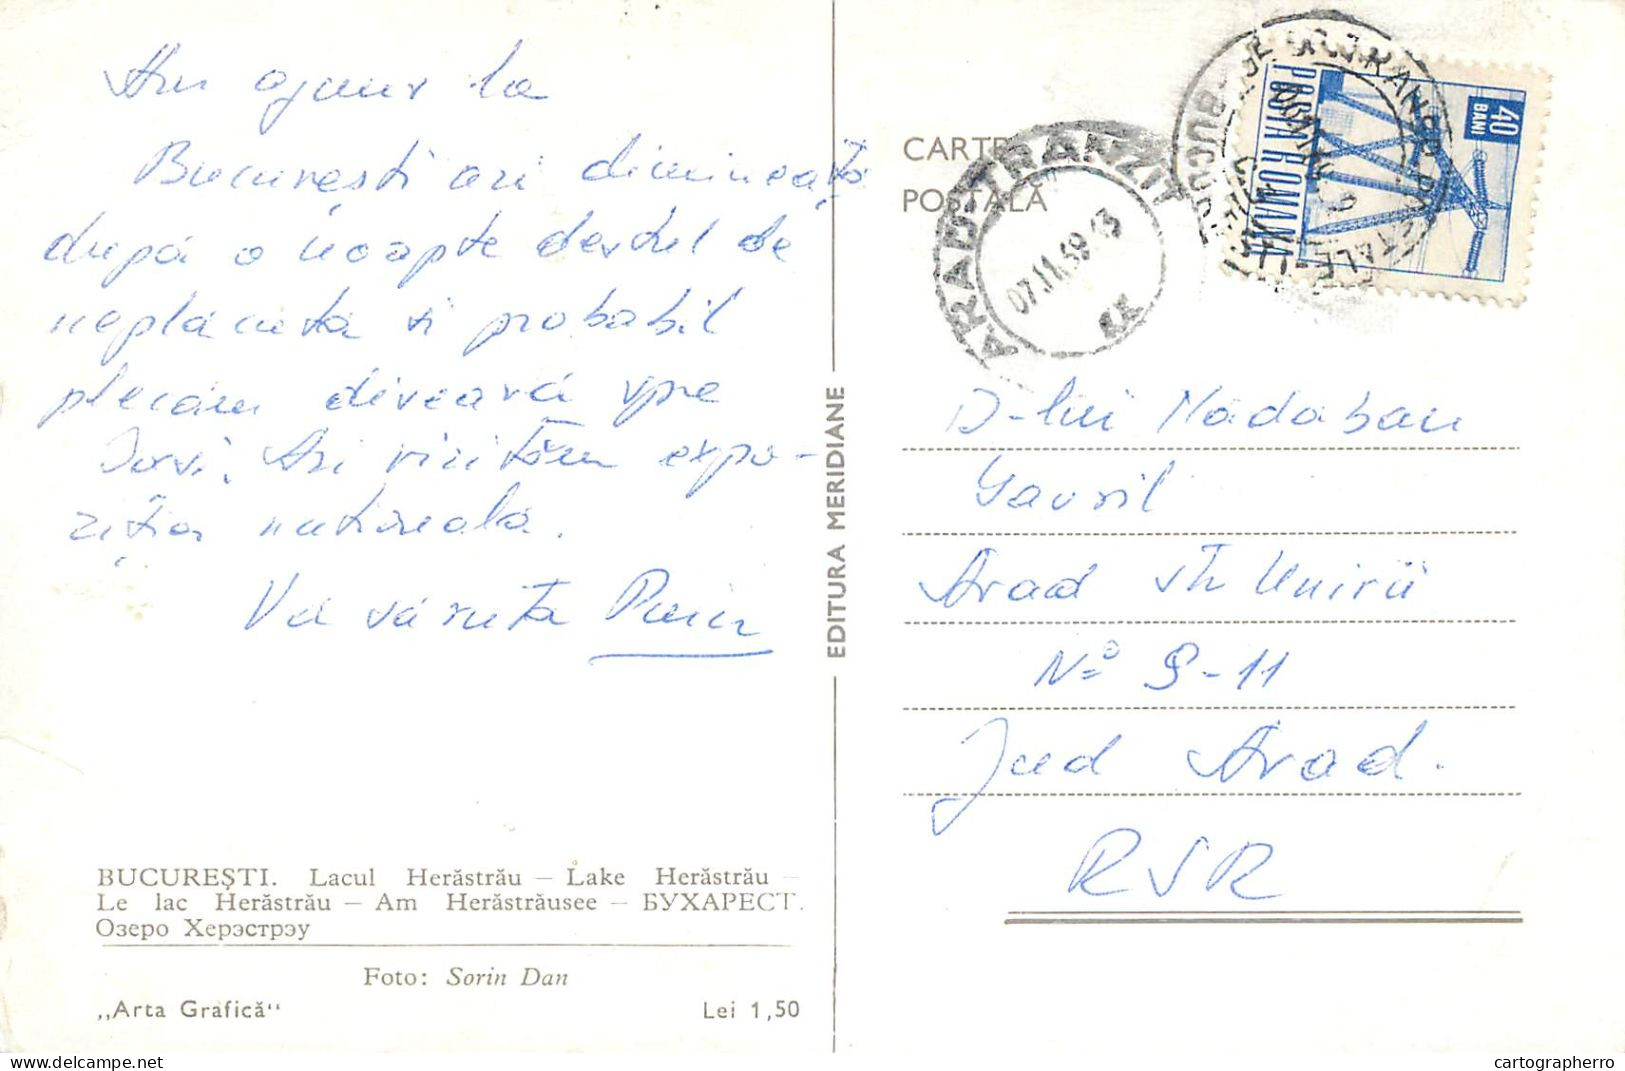 Am ajuns la
București azi dimineață
după o noapte destul de
neplăcută și probabil
plecăm diseară spre
Iași. Azi vizităm expo-
ziția națională.
Vă sărută
EDITURA MERIDIANE
CARTE
POȘTALĂ
ARAD-TRANZIT
07.11.69.13
40
BANI
POSTA ROMANA
D-lui Nadaban
Gavril
Arad str Unirii
No 9-11
Jud Arad.
RSR
BUCUREȘTI. Lacul Herăstrău – Lake Herăstrău –
Le lac Herăstrău – Am Herăsträusee – БУХАРЕСТ.
Озеро Херэстрэу
Foto: Sorin Dan
„Arta Grafică“ Lei 1,50
www.delcampe.net
cartographerro